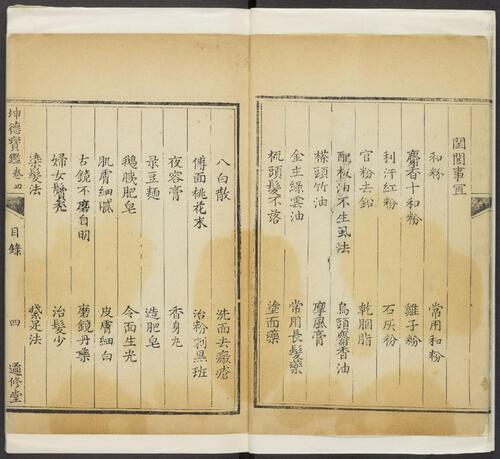 閨閣事宜
和粉 常用和粉
麝香十和粉 雞子粉
利汗紅粉 石灰粉
官粉去鉛 乾胭脂
配板油不生虱法 烏頭麝香油
搽頭竹油 摩風膏
金主綠雲油 常用長髮藥
梳頭髮不落 塗面藥
八白散 洗面去瘢痕
傅面桃花末 治粉刺黑斑
夜容膏 香身丸
菉豆麵 造肥皂
鵝胰肥皂 令面生光
肌膚細膩 皮膚細白
古鏡不磨自明 磨鏡丹藥
婦女鬢禿 治髮少
染髮法 紮足法
坤德寶鑑卷四 目錄 四 適修堂